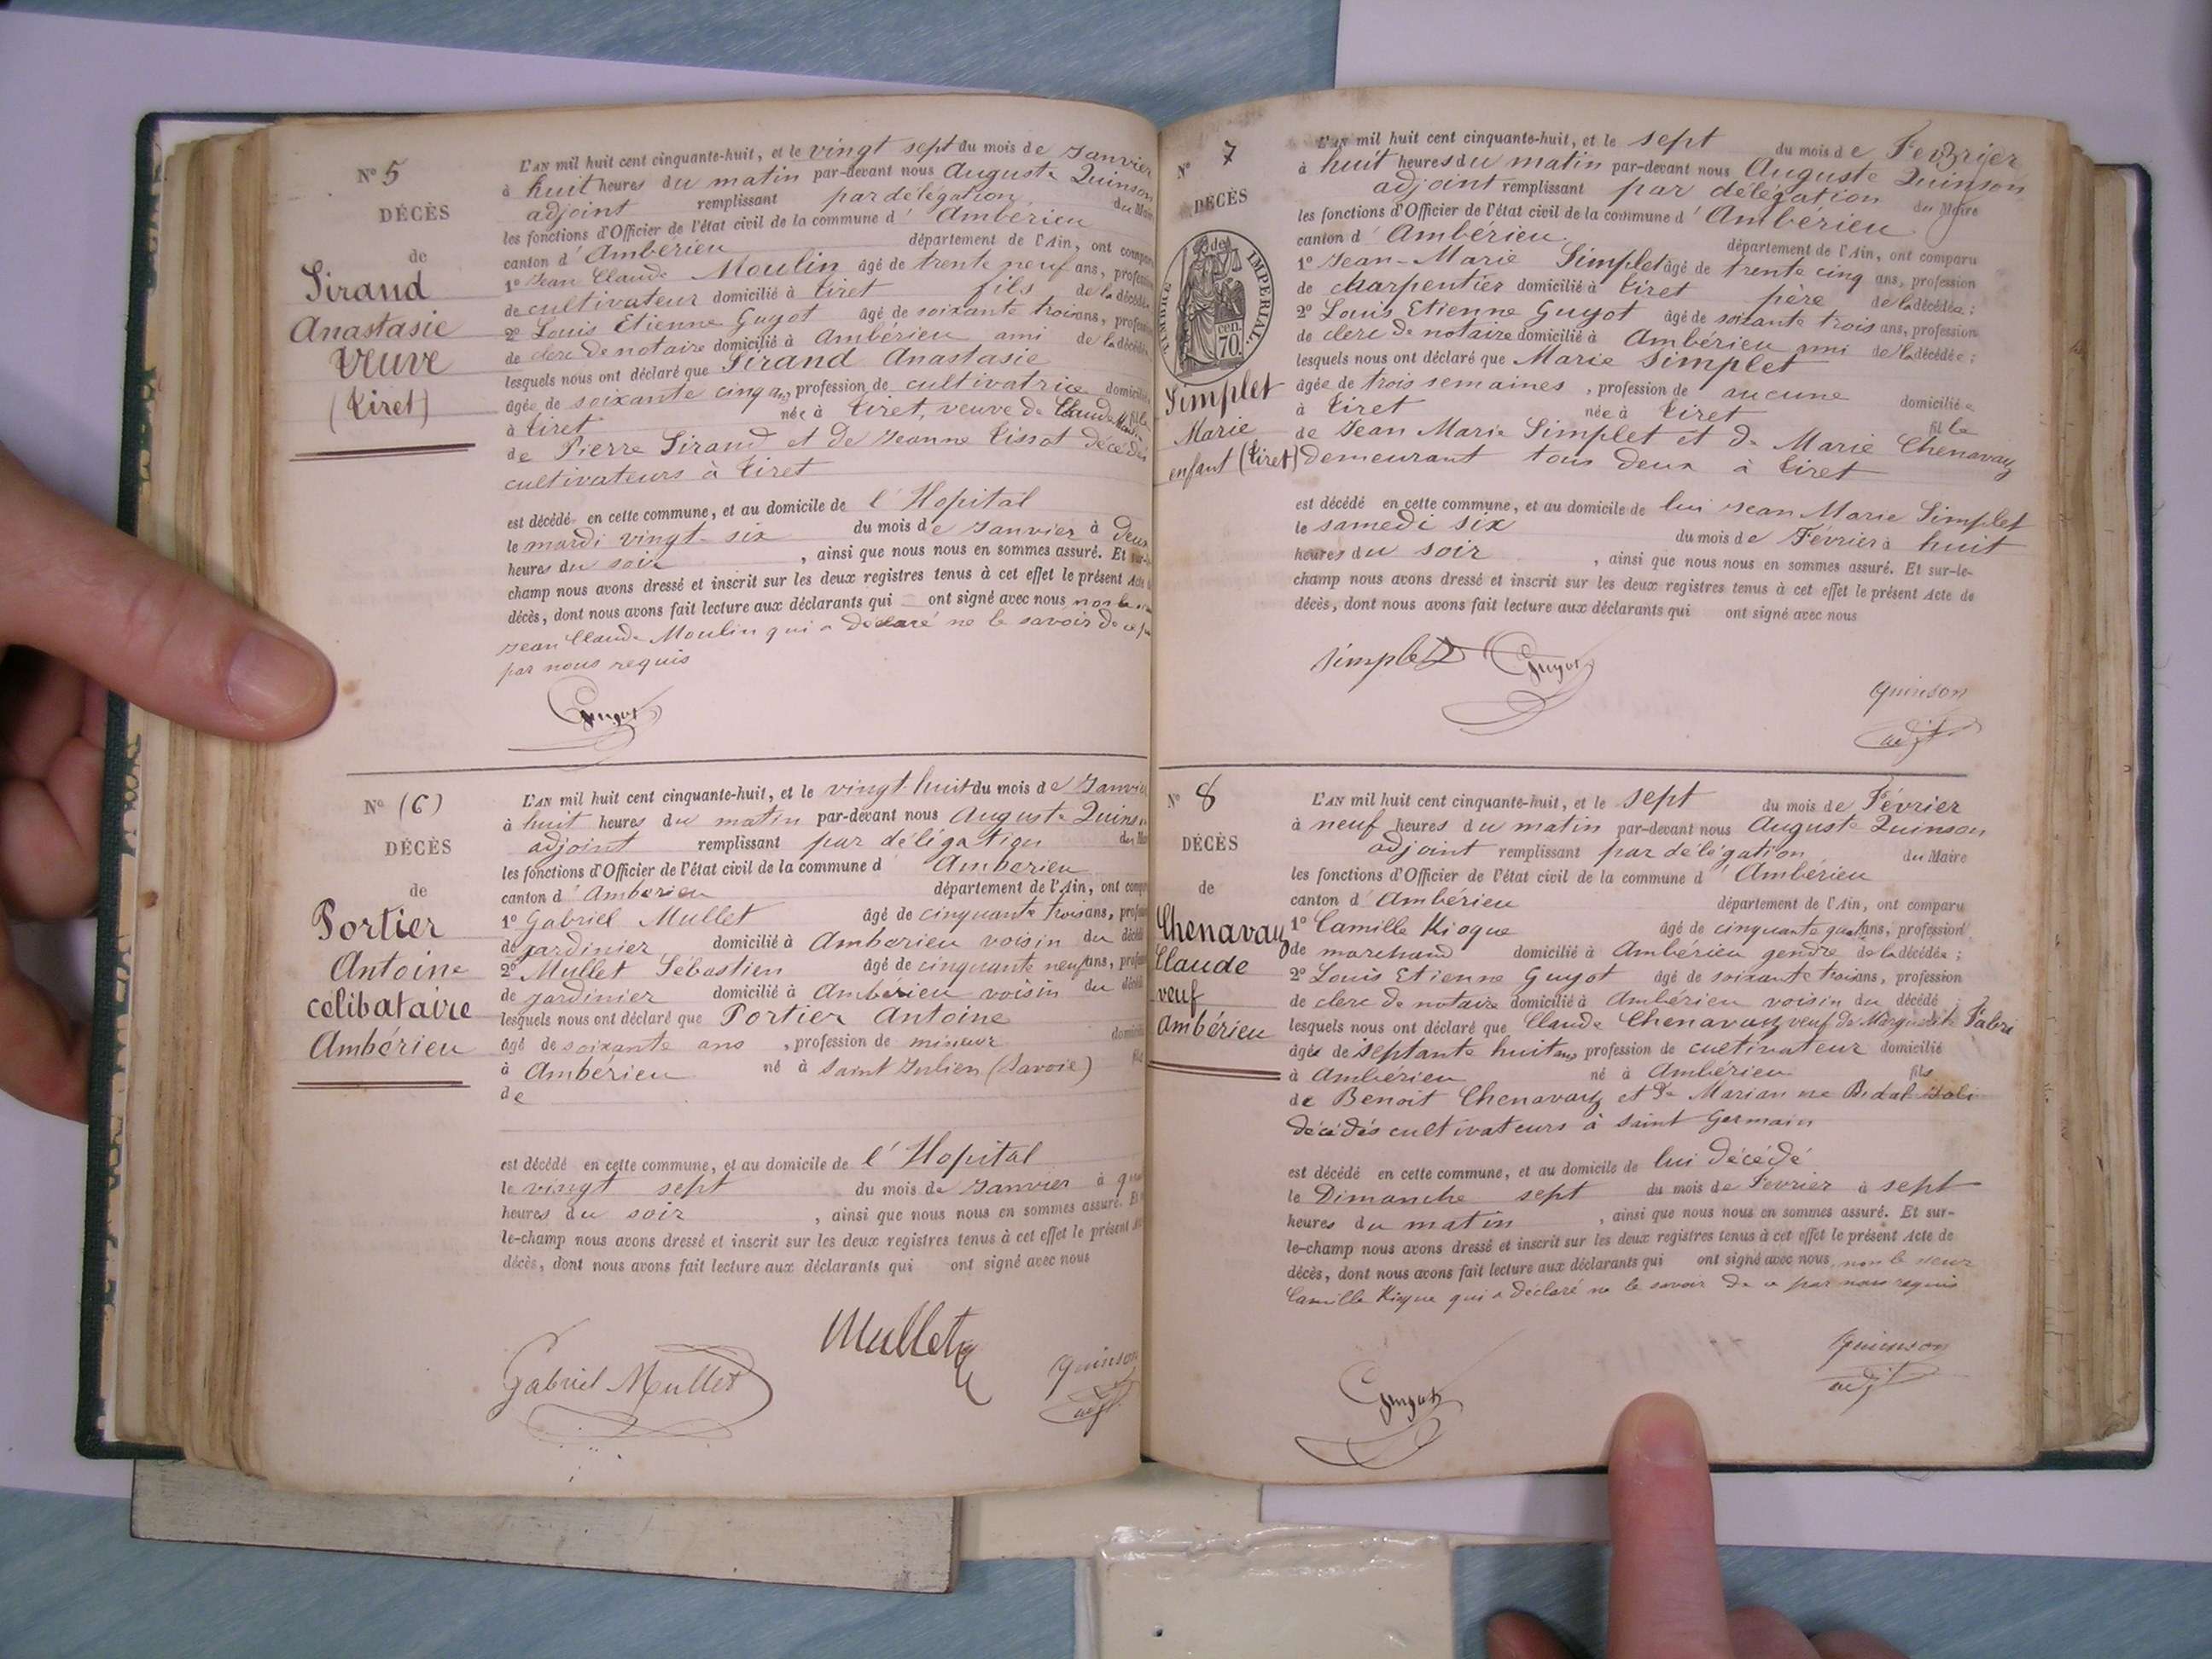 N° 5
DÉCÈS
de
Sirand
Anastasie
Veuve
(Tiret)
L'AN mil huit cent cinquante-huit, et le vingt sept du mois de Janvier
à huit heures du matin par-devant nous Auguste Quinson
adjoint remplissant par délégation du Maire
les fonctions d'Officier de l'état civil de la commune d'Ambérieu
canton d'Ambérieu département de l'Ain, ont comparu
1° Jean Claude Moulin âgé de trente neuf ans, profession
de cultivateur domicilié à Tiret fils de la décédée
2° Louis Etienne Guyot âgé de soixante trois ans, profession
de clerc de notaire domicilié à Ambérieu ami de la décédée
lesquels nous ont déclaré que Sirand Anastasie
âgée de soixante cinq ans, profession de cultivatrice domiciliée
à Tiret née à Tiret, veuve de Claude Moulin fille
de Pierre Sirand et de Jeanne Tissot décédés
cultivateurs à Tiret
est décédé en cette commune, et au domicile de l'Hopital
le mardi vingt-six du mois de Janvier à deux
heures du soir, ainsi que nous nous en sommes assuré. Et sur-le-
champ nous avons dressé et inscrit sur les deux registres tenus à cet effet le présent Acte de
décès, dont nous avons fait lecture aux déclarants qui ont signé avec nous non le
Jean Claude Moulin qui a déclaré ne le savoir de ce
par nous requis
Guyot
N° (6)
DÉCÈS
de
Portier
Antoine
célibataire
Ambérieu
L'AN mil huit cent cinquante-huit, et le vingt-huit du mois de Janvier
à huit heures du matin par-devant nous Auguste Quinson
adjoint remplissant par délégation du Maire
les fonctions d'Officier de l'état civil de la commune d Ambérieu
canton d'Ambérieu département de l'Ain, ont comparu
1° Gabriel Mullet âgé de cinquante trois ans, profession
de jardinier domicilié à Ambérieu voisin du décédé
2° Mullet Sébastien âgé de cinquante neuf ans, profession
de jardinier domicilié à Ambérieu voisin du décédé
lesquels nous ont déclaré que Portier Antoine
âgé de soixante ans, profession de mineur domicilié
à Ambérieu né à Saint Julien (Savoie) fils
de
est décédé en cette commune, et au domicile de l'Hopital
le vingt sept du mois de Janvier à
heures du soir, ainsi que nous nous en sommes assuré. Et
le-champ nous avons dressé et inscrit sur les deux registres tenus à cet effet le présent Acte
décès, dont nous avons fait lecture aux déclarants qui ont signé avec nous
Gabriel Mullet
Mullet
quinson
adjt
N° 7
DÉCÈS
de
TIMBRE IMPERIAL
70 cen.
Simplet
Marie
enfant (Tiret)
L'AN mil huit cent cinquante-huit, et le sept du mois de Février
à huit heures du matin par-devant nous Auguste Quinson
adjoint remplissant par délégation du Maire
les fonctions d'Officier de l'état civil de la commune d'Ambérieu
canton d'Ambérieu département de l'Ain, ont comparu
1° Jean-Marie Simplet âgé de trente cinq ans, profession
de charpentier domicilié à Tiret père de la décédée;
2° Louis Etienne Guyot âgé de soixante trois ans, profession
de clerc de notaire domicilié à Ambérieu ami de la décédée;
lesquels nous ont déclaré que Marie Simplet
âgée de trois semaines, profession de aucune domiciliée
à Tiret née à Tiret fille
de Jean Marie Simplet et de Marie Chenavaz
demeurant tous deux à Tiret
est décédé en cette commune, et au domicile de lui Jean Marie Simplet
le samedi six du mois de Février à huit
heures du soir, ainsi que nous nous en sommes assuré. Et sur-le-
champ nous avons dressé et inscrit sur les deux registres tenus à cet effet le présent Acte de
décès, dont nous avons fait lecture aux déclarants qui ont signé avec nous
Simplet
Guyot
quinson
adjt
N° 8
DÉCÈS
de
Chenavaz
Claude
veuf
Ambérieu
L'AN mil huit cent cinquante-huit, et le sept du mois de Février
à neuf heures du matin par-devant nous Auguste Quinson
adjoint remplissant par délégation du Maire
les fonctions d'Officier de l'état civil de la commune d'Ambérieu
canton d'Ambérieu département de l'Ain, ont comparu
1° Camille Kioque âgé de cinquante quatre ans, profession
de marchand domicilié à Ambérieu gendre de la décédée;
2° Louis Etienne Guyot âgé de soixante trois ans, profession
de clerc de notaire domicilié à Ambérieu voisin du décédé
lesquels nous ont déclaré que Claude Chenavaz veuf de Marguerite Fabri
âgé de septante huit ans profession de cultivateur domicilié
à Ambérieu né à Ambérieu fils
de Benoit Chenavaz et de Marianne Bidal
décédés cultivateurs à Saint Germain
est décédé en cette commune, et au domicile de lui décédé
le Dimanche sept du mois de Février à sept
heures du matin, ainsi que nous nous en sommes assuré. Et sur-
le-champ nous avons dressé et inscrit sur les deux registres tenus à cet effet le présent Acte de
décès, dont nous avons fait lecture aux déclarants qui ont signé avec nous non le sieur
Camille Kioque qui a déclaré ne le savoir de ce par nous requis
Guyot
quinson
adjt